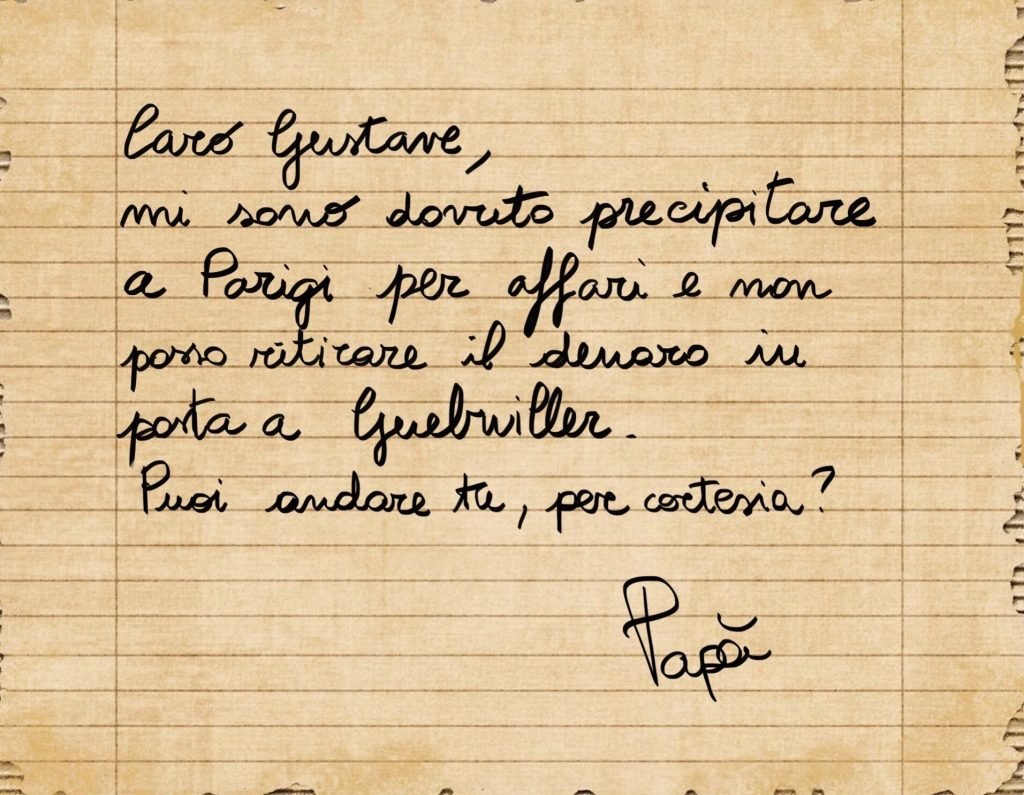 Caro Gustave,
mi sono dovuto precipitare
a Parigi per affari e non
posso ritirare il denaro in
posta a Guebwiller.
Puoi andare tu, per cortesia?
Papà